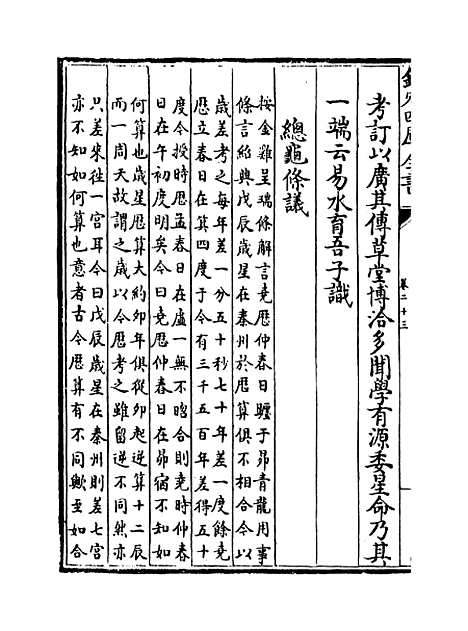 欽定四庫全書
卷二十三
考訂以廣其傳草堂博洽多聞學有源委星命乃其
一端云易水育吾子識
總龜條議
按金雞呈瑞條解言堯厯仲春日躔于昴青龍用事
條言紹興戊辰歲星在秦州於厯算俱不相合今以
歲差考之每年差一分五十秒七十年差一度餘堯
厯立春日在箕四度于今有三千五百年差得五十
度今授時厯孟春日在虛一無不昭合則堯時仲春
日在午初度明矣今曰堯厯仲春日在昴宿不知如
何算也歲星厯算大約卯年俱從卯起逆算十二辰
而一周天故謂之歲以今厯考之雖留逆不同然亦
只差來徃一宮耳今曰戊辰歲星在秦州則差七宮
亦不知如何算也意者古今厯算有不同歟至如合